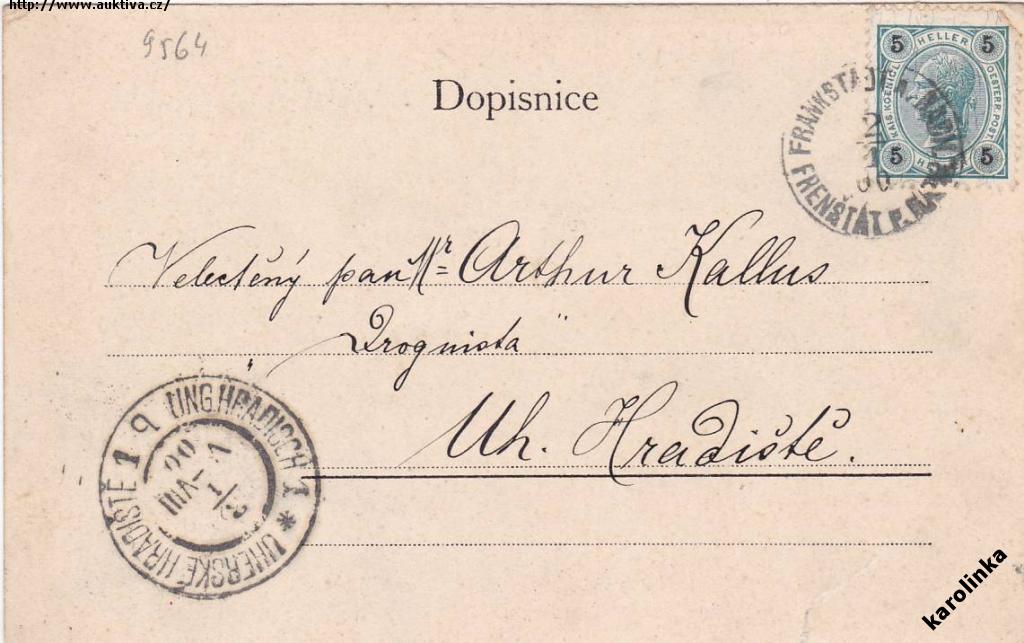 http://www.auktiva.cz/
9564
Dopisnice
5 HELLER 5
KAIS. KOENIGL. OESTERR. POST.
5 5
FRANKSTADT
FRENŠTÁT P.
2
1
00
Velectěný pan Mr Arthur Kallus
Drognista
Uh. Hradiště.
UNG. HRADISCH 1
UHERSKÉ HRADIŠTĚ 1
00
karolinka